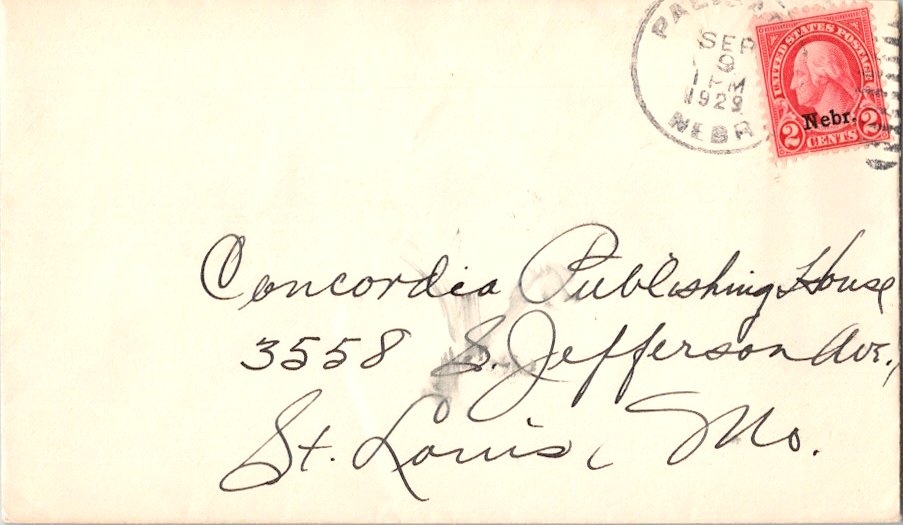 SEP
9
1 PM
1929
NEBR
UNITED STATES POSTAGE
Nebr.
2 CENTS 2
Concordia Publishing House
3558 S. Jefferson Ave.,
St. Louis, Mo.